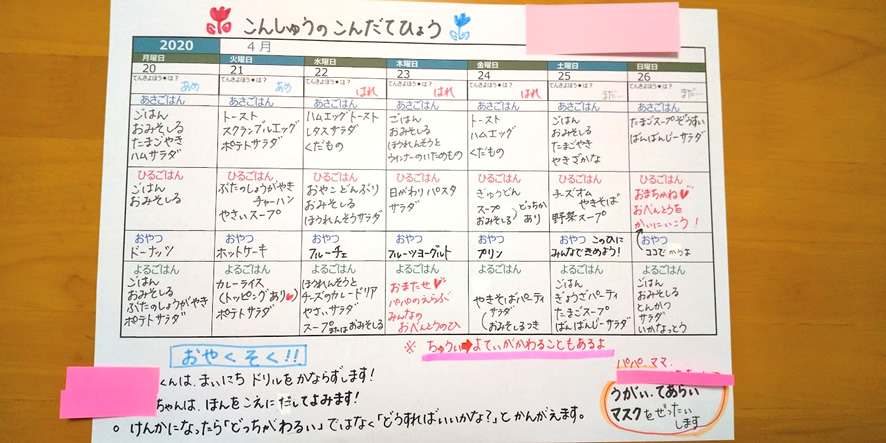 こんしゅうのこんだてひょう
2020 4月
月曜日 火曜日 水曜日 木曜日 金曜日 土曜日 日曜日
20 21 22 23 24 25 26
てんきよほう★は? てんきよほう★は? てんきよほう★は? てんきよほう★は? てんきよほう★は? てんきよほう★は? てんきよほう★は?
あめ あめ はれ はれ はれ まだ… まだ…
あさごはん
ごはん
おみそしる
たまごやき
ハムサラダ
あさごはん
トースト
スクランブルエッグ
ポテトサラダ
あさごはん
ハムエッグトースト
レタスサラダ
くだもの
あさごはん
ごはん
おみそしる
ほうれんそうと
ウィンナーのいためもの
あさごはん
トースト
ハムエッグ
くだもの
あさごはん
ごはん
おみそしる
たまごやき
やきざかな
あさごはん
たまごスープぞうすい
ばんばんじーサラダ
ひるごはん
ごはん
おみそしる
ひるごはん
ぶたのしょうがやき
チャーハン
やさいスープ
ひるごはん
おやこどんぶり
おみそしる
ほうれんそうサラダ
ひるごはん
日がわりパスタ
サラダ
ひるごはん
ぎゅうどん
スープ
おみそしる
どっちか
あり
ひるごはん
チーズオム
やきそば
野菜スープ
ひるごはん
おまちかね♥
おべんとうを
かいにいこう!
おやつ
ドーナッツ
おやつ
ホットケーキ
おやつ
フルーチェ
おやつ
フルーツヨーグルト
おやつ
プリン
おやつ このひに
みんなできめよう!
おやつ
ココでかうよ
よるごはん
ごはん
おみそしる
ぶたのしょうがやき
ポテトサラダ
よるごはん
カレーライス
(トッピングあり♥)
ポテトサラダ
よるごはん
ほうれんそうと
チーズのカレードリア
やさいサラダ
スープまたはおみそしる
よるごはん
おまたせ♥
パパのえらぶ
みんなの
おべんとうのひ
よるごはん
やきそばパーティ
サラダ
(おみそしるつき
よるごはん
ごはん
ぎょうざパーティ
たまごスープ
ばんばんじーサラダ
よるごはん
ごはん
おみそしる
とんかつ
サラダ
いかなっとう
※ ちゅうい➡よていがかわることもあるよ
おやくそく!!
くんは、まいにちドリルをかならずします!
ちゃんは、ほんをこえにだしてよみます!
○ けんかになったら「どっちがわるい」ではなく「どうすればいいかな?」とかんがえます。
パパ、ママ、
うがい、てあらい
マスクをぜったい
します